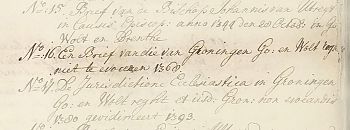 No. 15. Brief van de Bisschop Johannis van Utregt
in Causis Episcop: anno 1344 den 20 Octob: in Go
Wolt en Drenthe
No. 16. Een Brief van die van Groningen Go: en Wolt
niet te evoceren 1360.
No. 17. De Jurisdictione Ecclesiastica in Groningen
Go: en Wolt regt et eisd: Gron: non evocandis
1380 gevidimeert 1393.